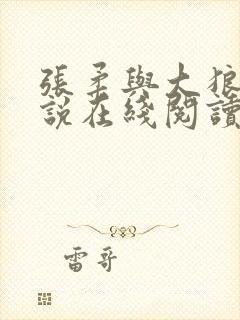 張柔與大狼
說在綫閱讀
雷哥